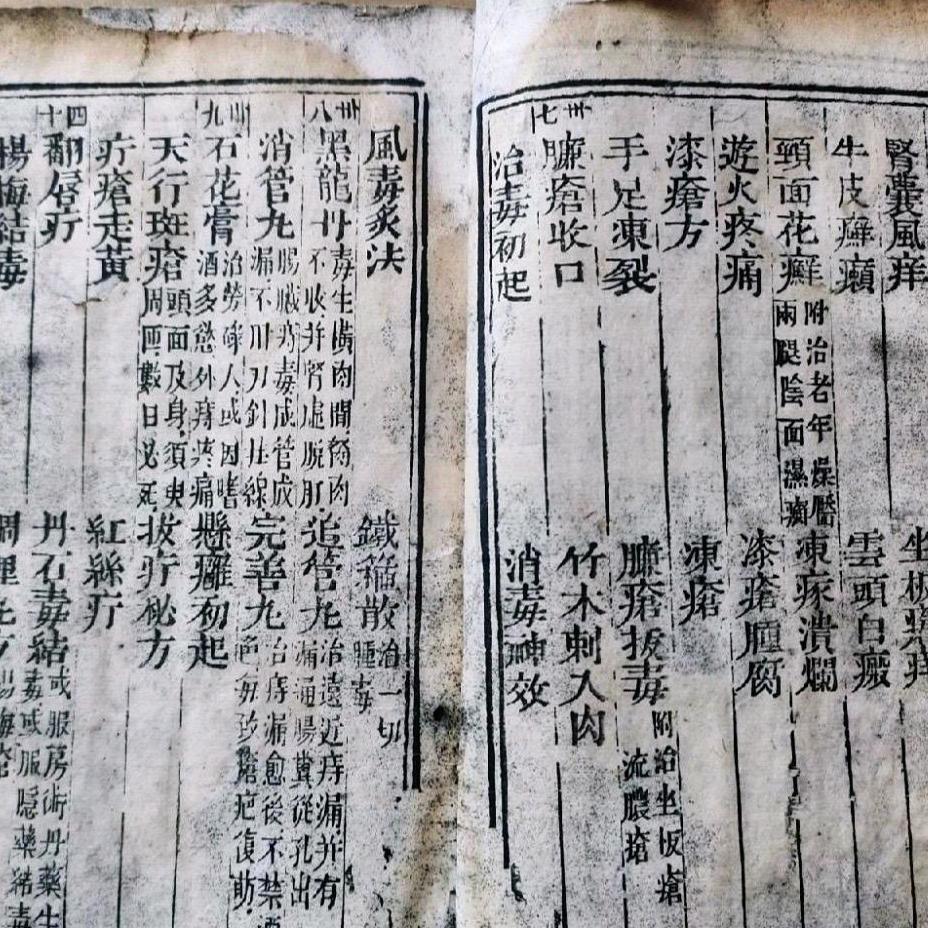 腎囊風痒
坐板瘡痒
牛皮癬癩
雲頭白癜
頸面花癬 附治老年燥曆兩腿陰面濕癩
凍瘃潰爛
遊火疼痛
漆瘡腫腐
漆瘡方
凍瘡
手足凍裂
臁瘡拔毒 附治坐板瘡流膿瘡
卅七
臁瘡收口
竹木刺入肉
治毒初起
消毒神效
風毒炙法
鐵箍散 治一切腫毒
卅八
黑龍丹 毒生橫肉間努肉不收并腎虛脫肛
追管丸 治遠近痔漏并有漏通腸糞從孔出
消管丸 腸臟痔毒成管成漏不用刀針挂線
完善丸 治痔漏愈後不禁色每致瘡疤復
卅九
石花膏 治勞碌人或因嗜酒多慾外痔疼痛
懸癰初起
天行斑瘡 頭面及身須臾周匝數日必死
拔疔秘方
疔瘡走黃
紅絲疔
四十
翻唇疔
丹石毒結 或服房術丹藥生毒或服隱藥結毒
楊梅結毒